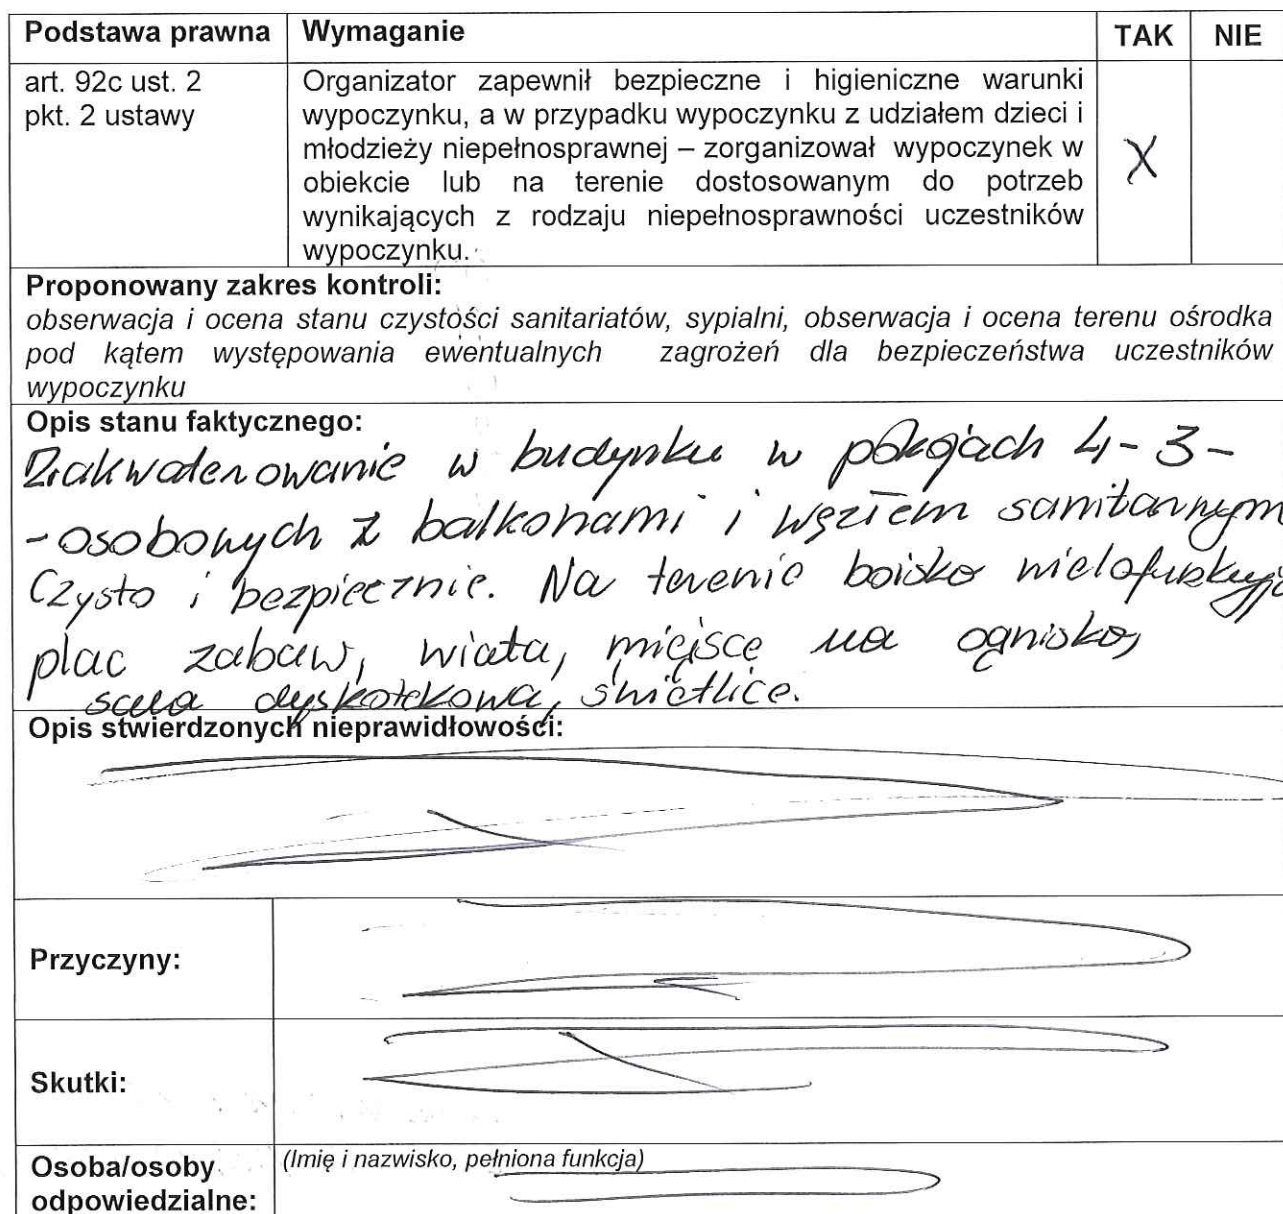 Podstawa prawna Wymaganie TAK NIE
art. 92c ust. 2
pkt. 2 ustawy
Organizator zapewnił bezpieczne i higieniczne warunki
wypoczynku, a w przypadku wypoczynku z udziałem dzieci i
młodzieży niepełnosprawnej – zorganizował wypoczynek w
obiekcie lub na terenie dostosowanym do potrzeb
wynikających z rodzaju niepełnosprawności uczestników
wypoczynku.
X
Proponowany zakres kontroli:
obserwacja i ocena stanu czystości sanitariatów, sypialni, obserwacja i ocena terenu ośrodka
pod kątem występowania ewentualnych zagrożeń dla bezpieczeństwa uczestników
wypoczynku
Opis stanu faktycznego:
Zakwaterowanie w budynku w pokojach 4-3-
-osobowych z balkonami i węzłem sanitarnym
Czysto i bezpiecznie. Na terenie boisko
plac zabaw, wiata, miejsce na ognisko,
sala dyskotekowa, świetlice.
Opis stwierdzonych nieprawidłowości:
Przyczyny:
Skutki:
Osoba/osoby
odpowiedzialne:
(Imię i nazwisko, pełniona funkcja)